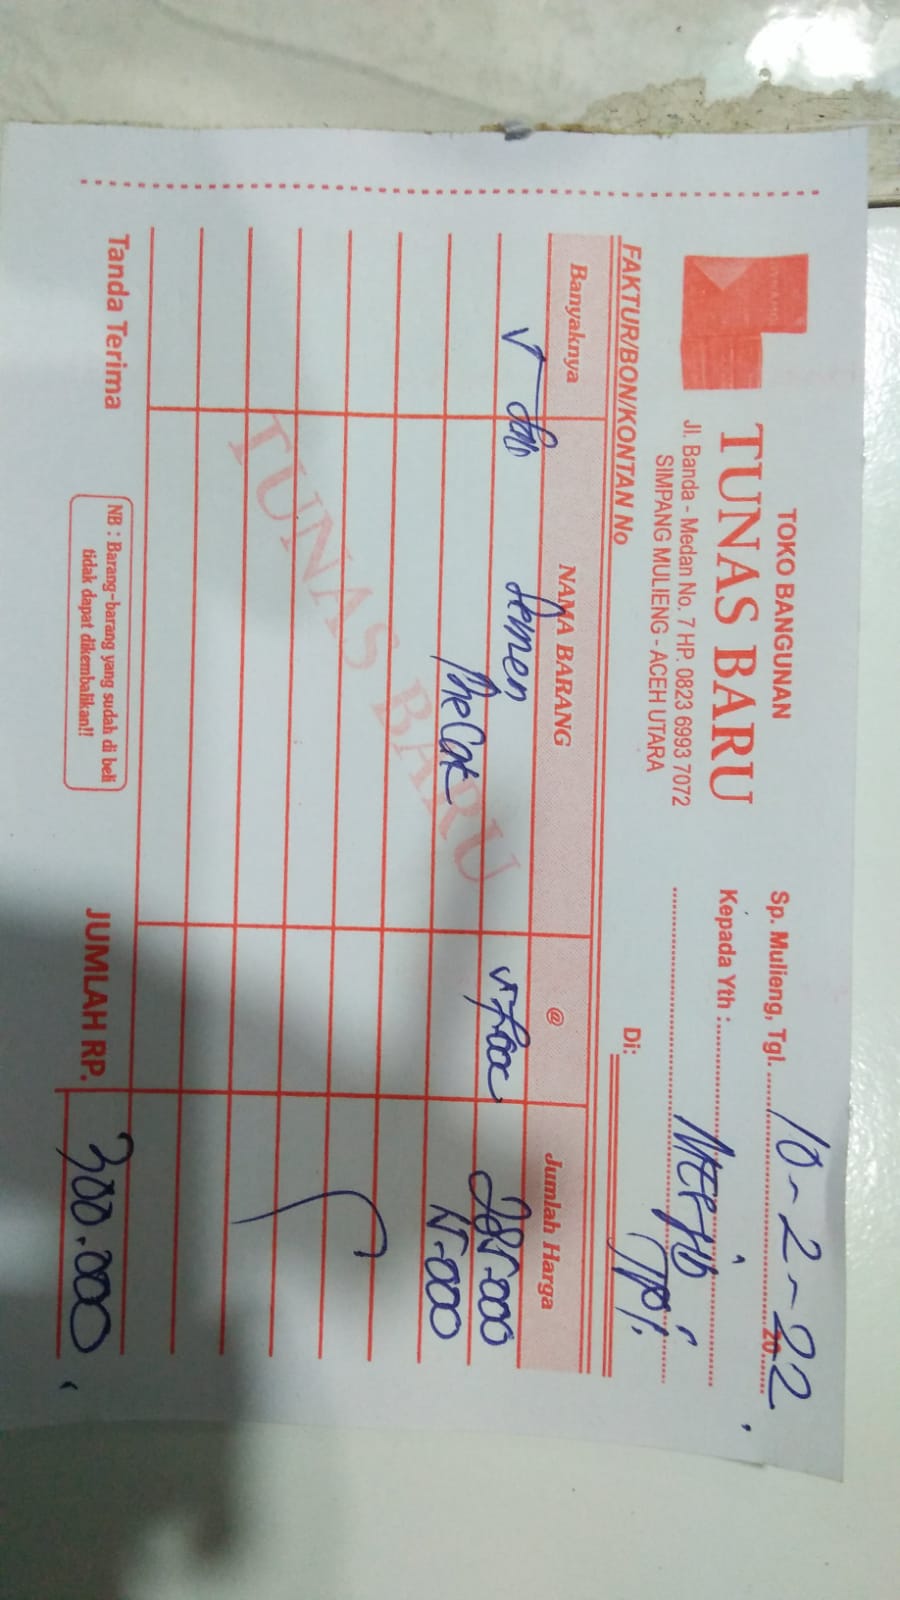 TOKO BANGUNAN
TUNAS BARU
Jl. Banda - Medan No. 7 HP. 0823 6993 7072
SIMPANG MULIENG - ACEH UTARA
Sp. Mulieng, Tgl. 10-2-22 20
Kepada Yth :
Di:
FAKTUR/BON/KONTAN No
Banyaknya NAMA BARANG @ Jumlah Harga
Semen 285.000
15.000
TUNAS BARU
Tanda Terima
NB : Barang-barang yang sudah di beli
tidak dapat dikembalikan!!
JUMLAH RP. 300.000